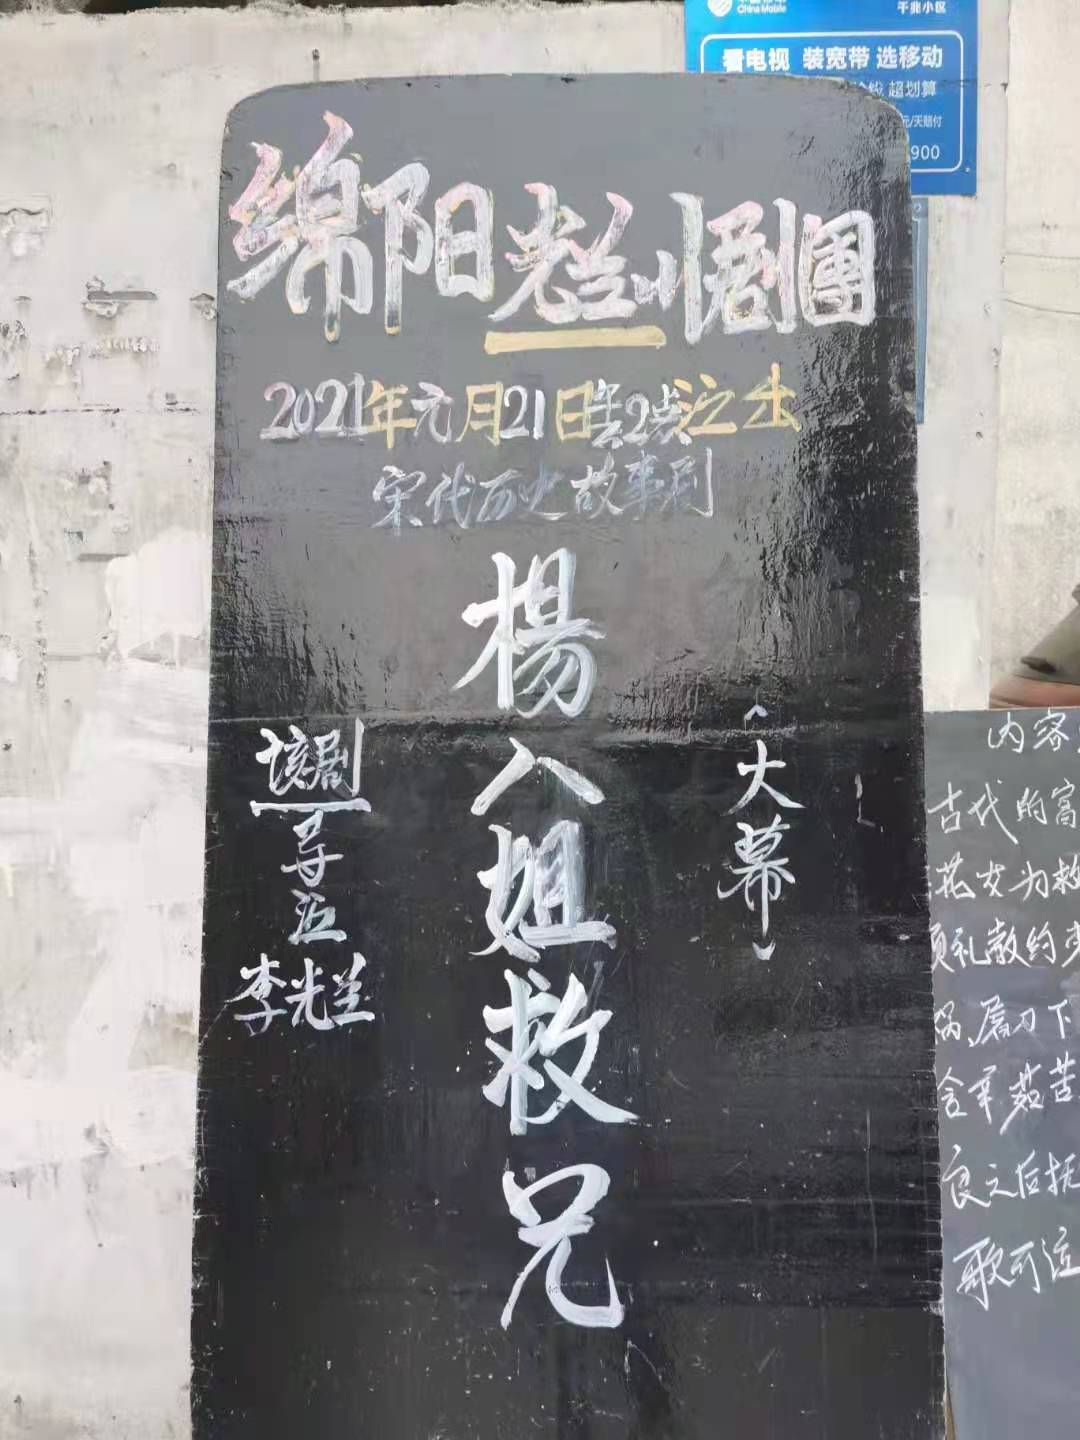 China Mobile
千兆小区
看电视 装宽带 选移动
超划算
元/天赔付
900
绵阳光兰川剧團
2021年元月21日晚2点演出
宋代历史故事剧
楊八姐救兄
(大幕)
该剧
导演
李光兰
内容
古代的富
花女为救
顶礼教约束
祸、屠刀下
含辛茹苦
良之后抚
歌可泣